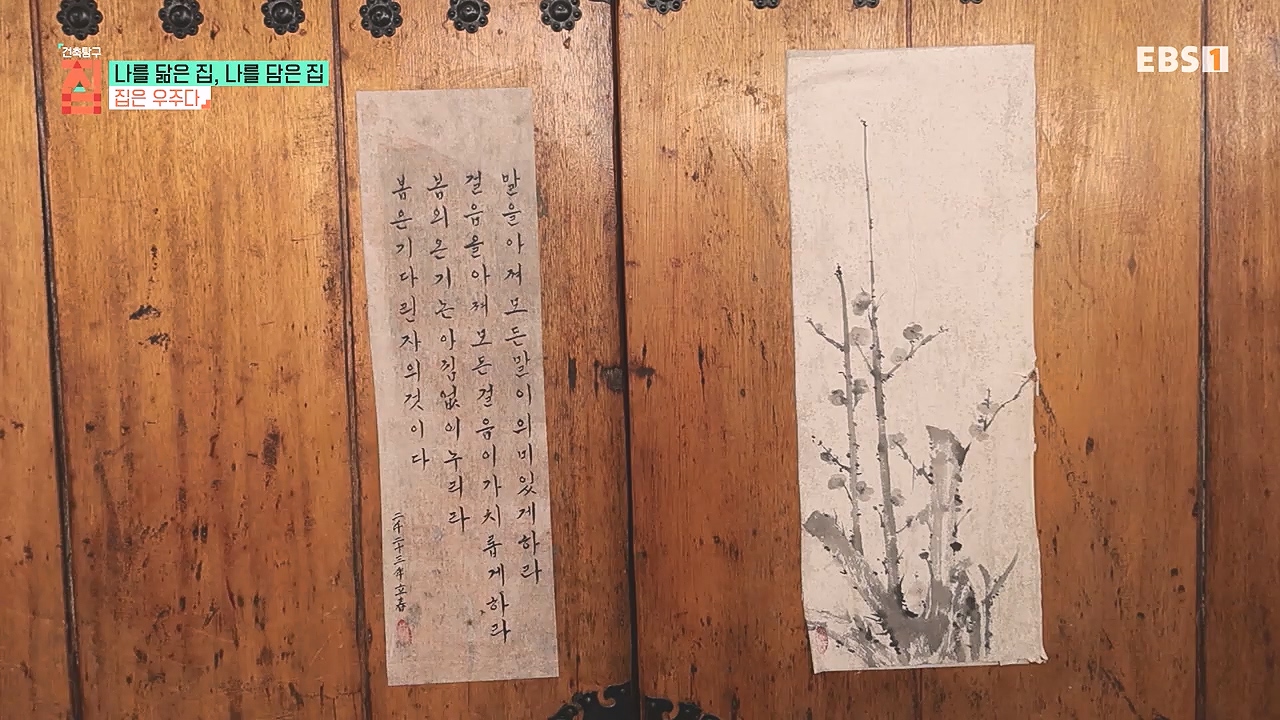 건축탐구
집
나를 닮은 집, 나를 담은 집
집은 우주다
EBS1
말을아껴모든말이의미있게하라
걸음을아껴모든걸음이가치롭게하라
봄의온기는아낌없이누리라
봄은기다린자의것이다
二千二十三年立春